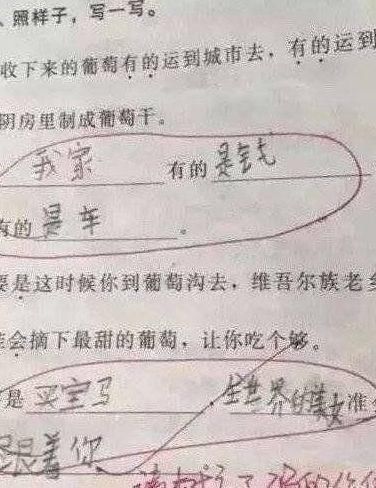 、照样子，写一写。
收下来的葡萄有的运到城市去，有的运到
阴房里制成葡萄干。
我家 有的 是钱
有的 是车 。
要是这时候你到葡萄沟去，维吾尔族老乡
会摘下最甜的葡萄，让你吃个够。
是 买宝马 ，全世界的美女准
跟着你